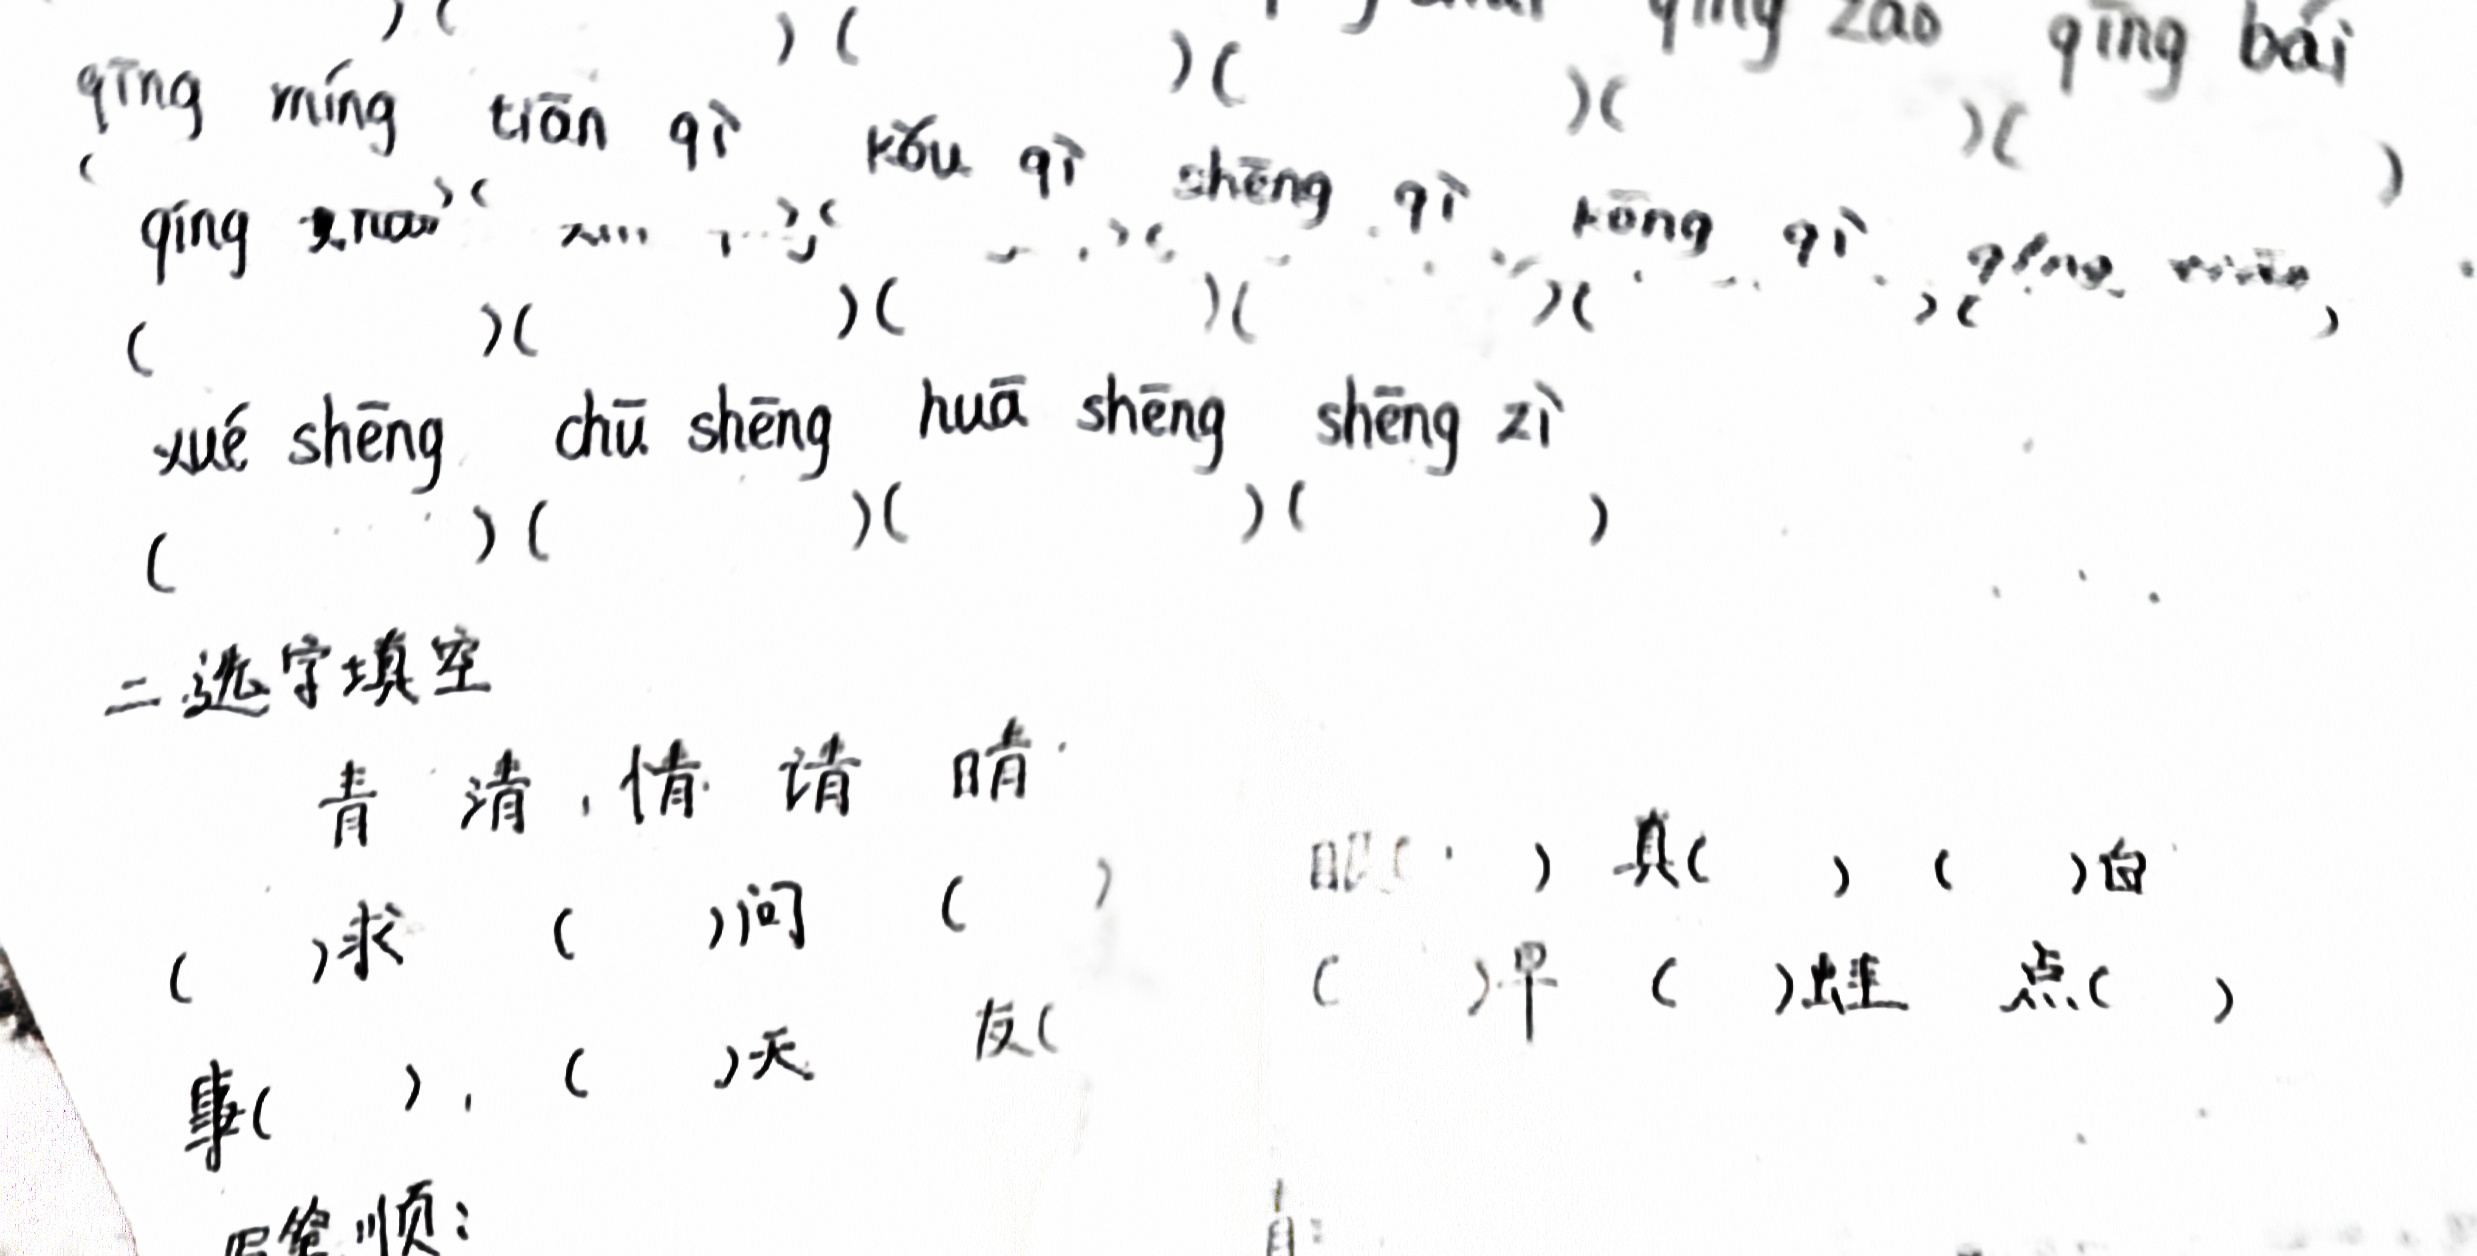 zǎo qīng bái
)( )( )( )( )( )
qīng míng tiān qì kǒu qì shēng qì kōng qì
( )( )( )( )( )( )
qíng
( )( )( )( )( )( )
xué shēng chū shēng huā shēng shēng zì
( )( )( )( )
二 选字填空
青 清 情 请 晴
( )求 ( )问 ( ) ( ) 真( ) ( )白
事( ) ( )天 友( ( )早 ( )蛙 点( )
写笔顺: